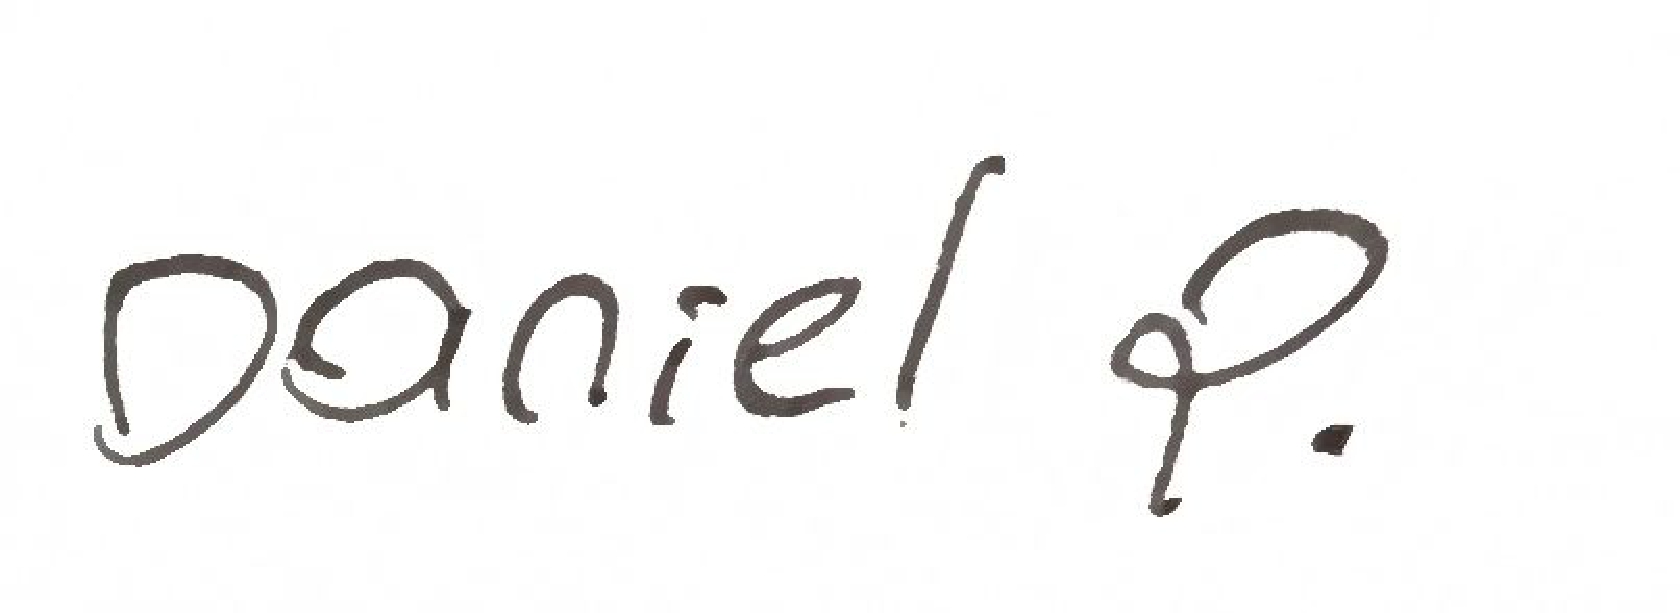 Daniel P.